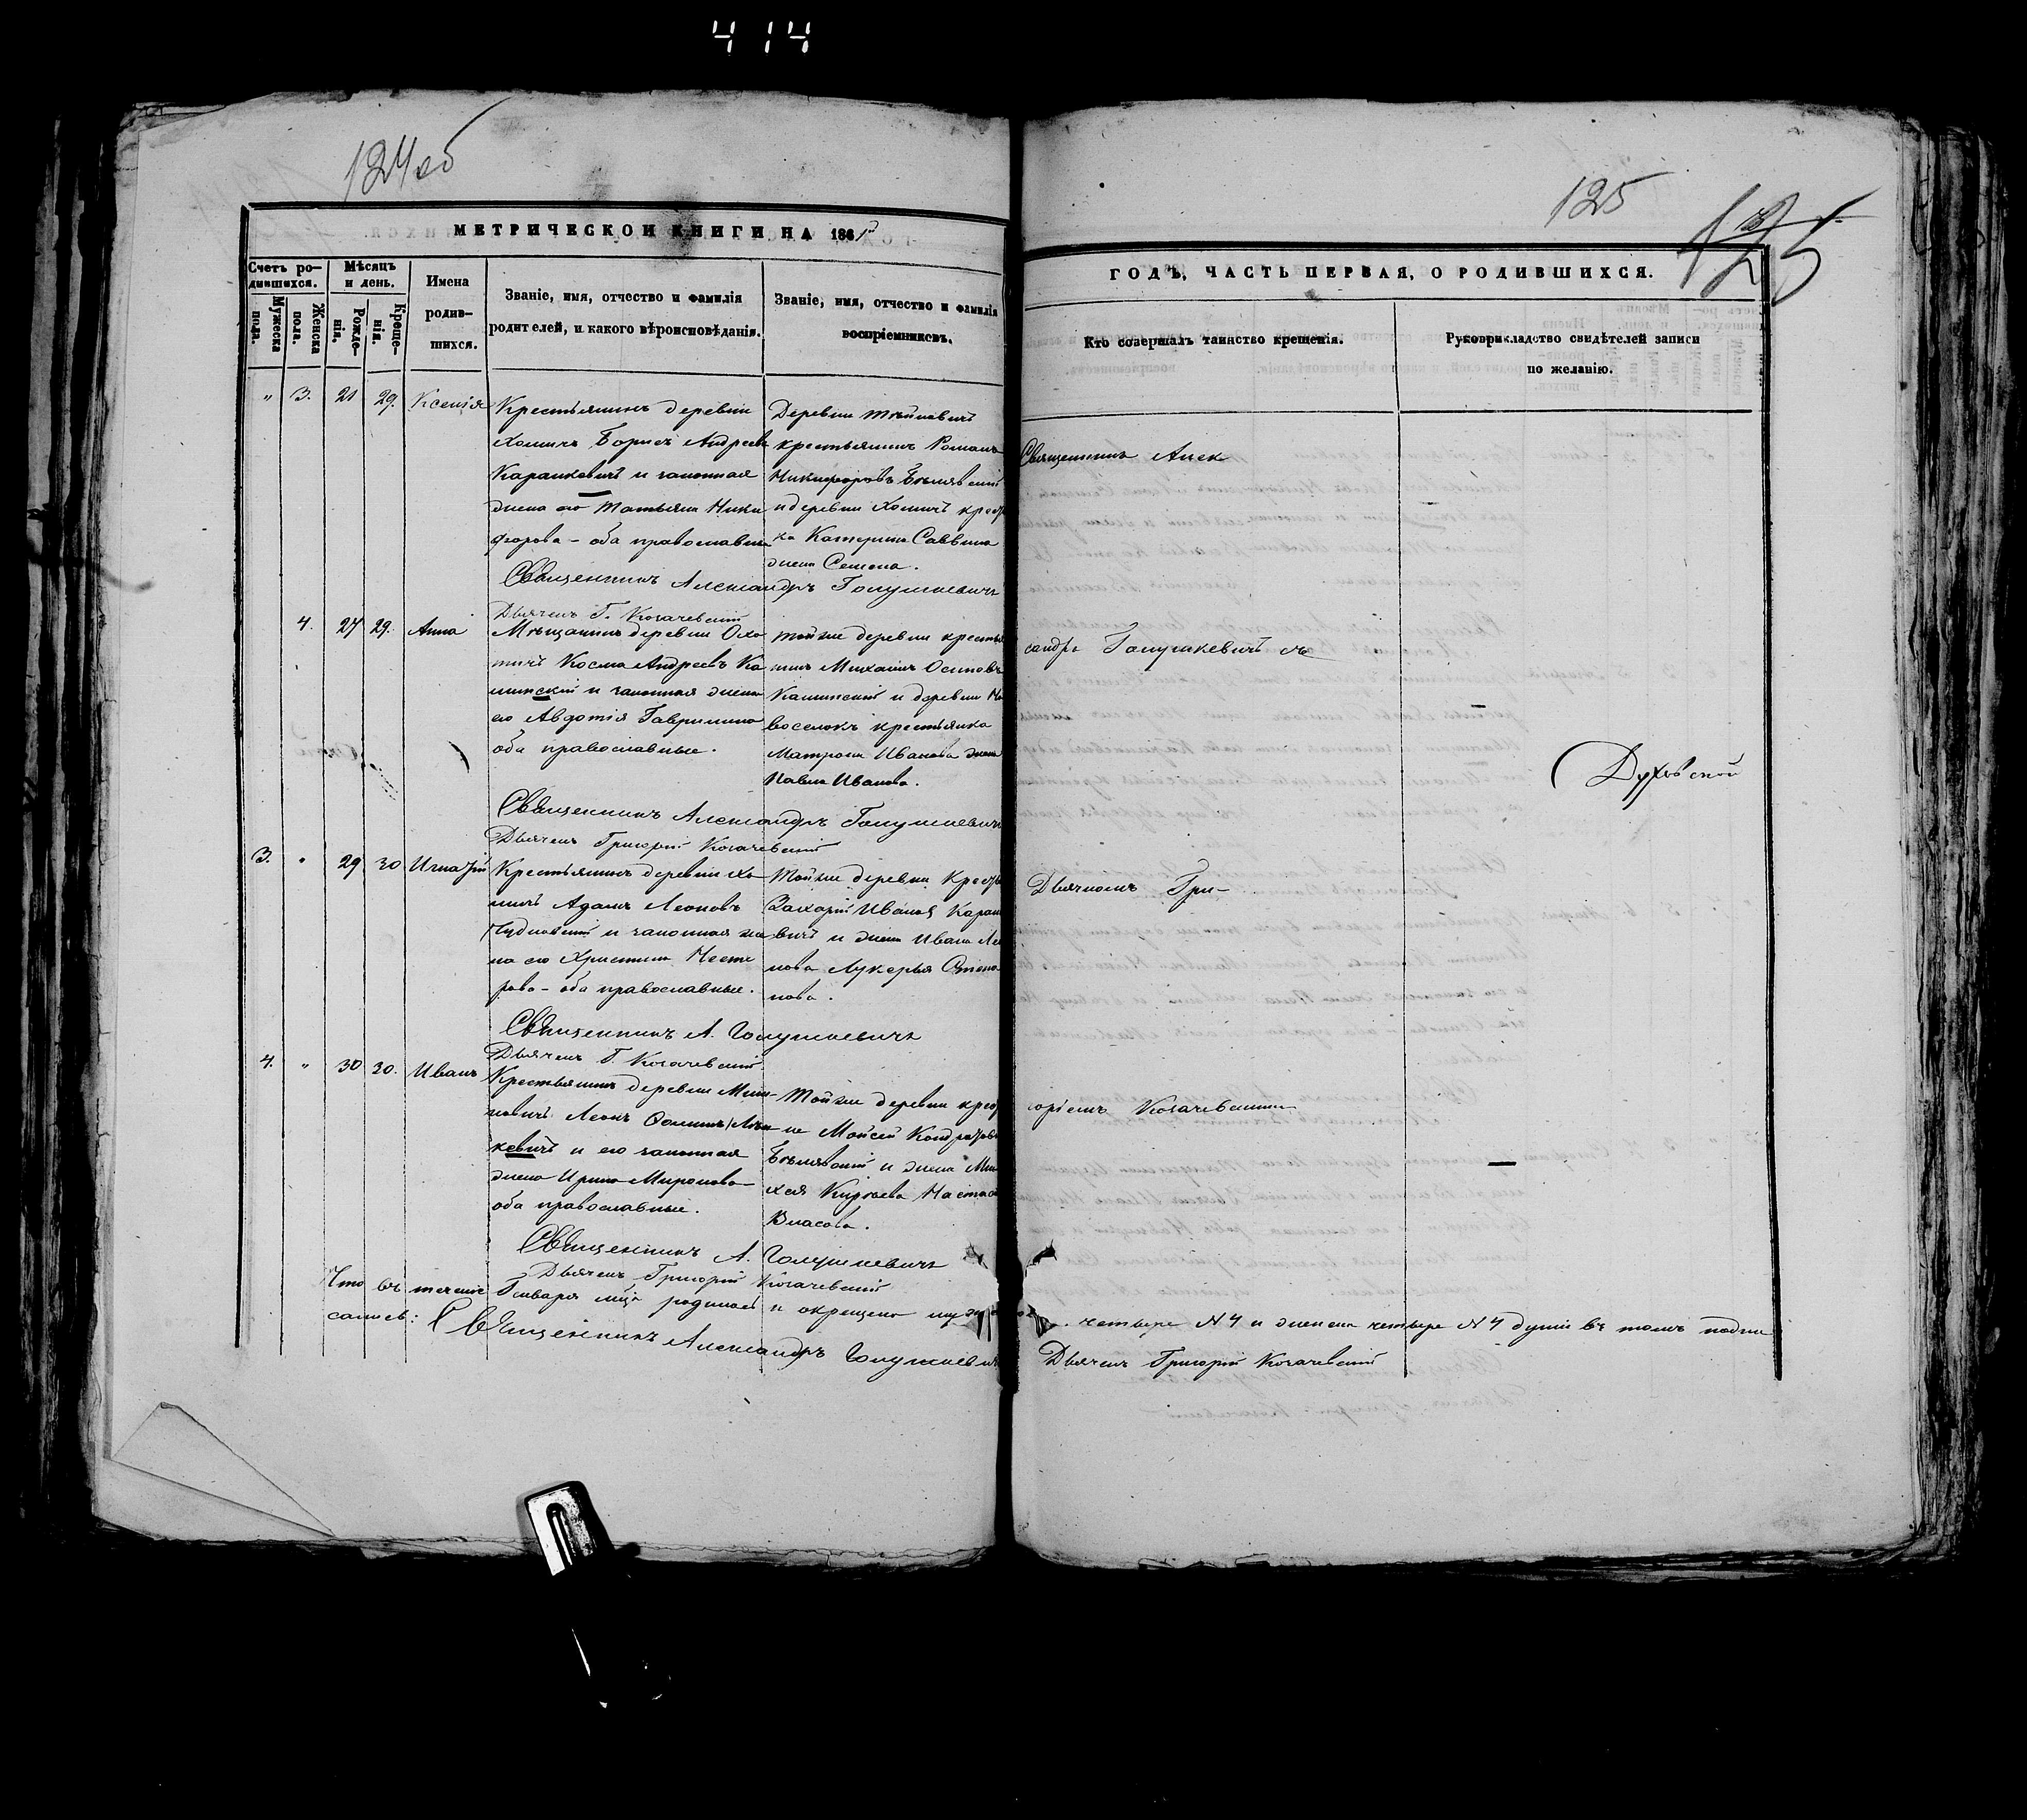 414
124 об
125
125
МЕТРИЧЕСКОЙ КНИГИ НА 1861
ГОДЪ, ЧАСТЬ ПЕРВАЯ, О РОДИВШИХСЯ.
Счетъ родившихся.
Мужеска пола.
Женска пола.
Мѣсяцъ и день.
Рожденія.
Крещенія.
Имена родившихся.
Званіе, имя, отчество и фамилія
родителей, и какого вѣроисповѣданія.
Званіе, имя, отчество и фамилія
воспріемниковъ.
Кто совершалъ таинство крещенія.
Рукоприкладство свидѣтелей записи
по желанію.
" 3. 21 29. Ксенія
Крестьянинъ деревни
Хомичъ Борисъ Андреевъ
Каранкевичъ и законная
жена его Татьяна Ники
форова - оба православные
Деревни
крестьянинъ Романъ
Никифоровъ Бѣлявскій
и деревни Хомичъ крест
ка Катерина Саввина
жена Семена.
Священникъ Александръ Голушкевичъ
Дьячекъ Г. Козачевскій
4. 27 29. Анна
Мѣщанинъ деревни Охо
тичъ Косма Андреевъ Ка
минскій и законная жена
его Авдотія Гаврилова
оба православные.
Тойже деревни крестья
нинъ Михаилъ Осиповъ
Каминскій и деревни Но
воселокъ крестьянка
Матрона Иванова жена
Павла Иванова.
Священникъ Александръ Голушкевичъ
Дьячекъ Григорій Козачевскій
3. " 29 30 Игнатій
Крестьянинъ деревни Хо
мичъ Адамъ Леоновъ
Чудновскій и законная же
на его Христина Несте
рова - оба православные.
Тойже деревни Крест
Захарій Ивановъ Каран
вичъ и жена Ивана Ле
нова Лукерья Степа
нова.
Священникъ А. Голушкевичъ
Дьячекъ Г. Козачевскій
4. " 30 30. Иванъ
Крестьянинъ деревни
новичъ Леонъ Ѳоминъ
кевичъ и его законная
жена Ирина Миронова
оба православные.
Тойже деревни крест
не Моисей Кондратовъ
Бѣлявскій и жена Ми
хея Кирѣева Настас
Власова.
Священникъ А. Голушкевичъ
Дьячекъ Григорій Козачевскій
Священникъ Алек
сандръ Голушкевичъ съ
Дьячкомъ Гри-
горіемъ Козачевскимъ
Духовской
Что въ теченіе Генваря мца родилось и окрещено муж четыре №4 и женска четыре №4 души въ томъ подпи
сались: Священникъ Александръ Голушкевичъ
Дьячекъ Григорій Козачевскій